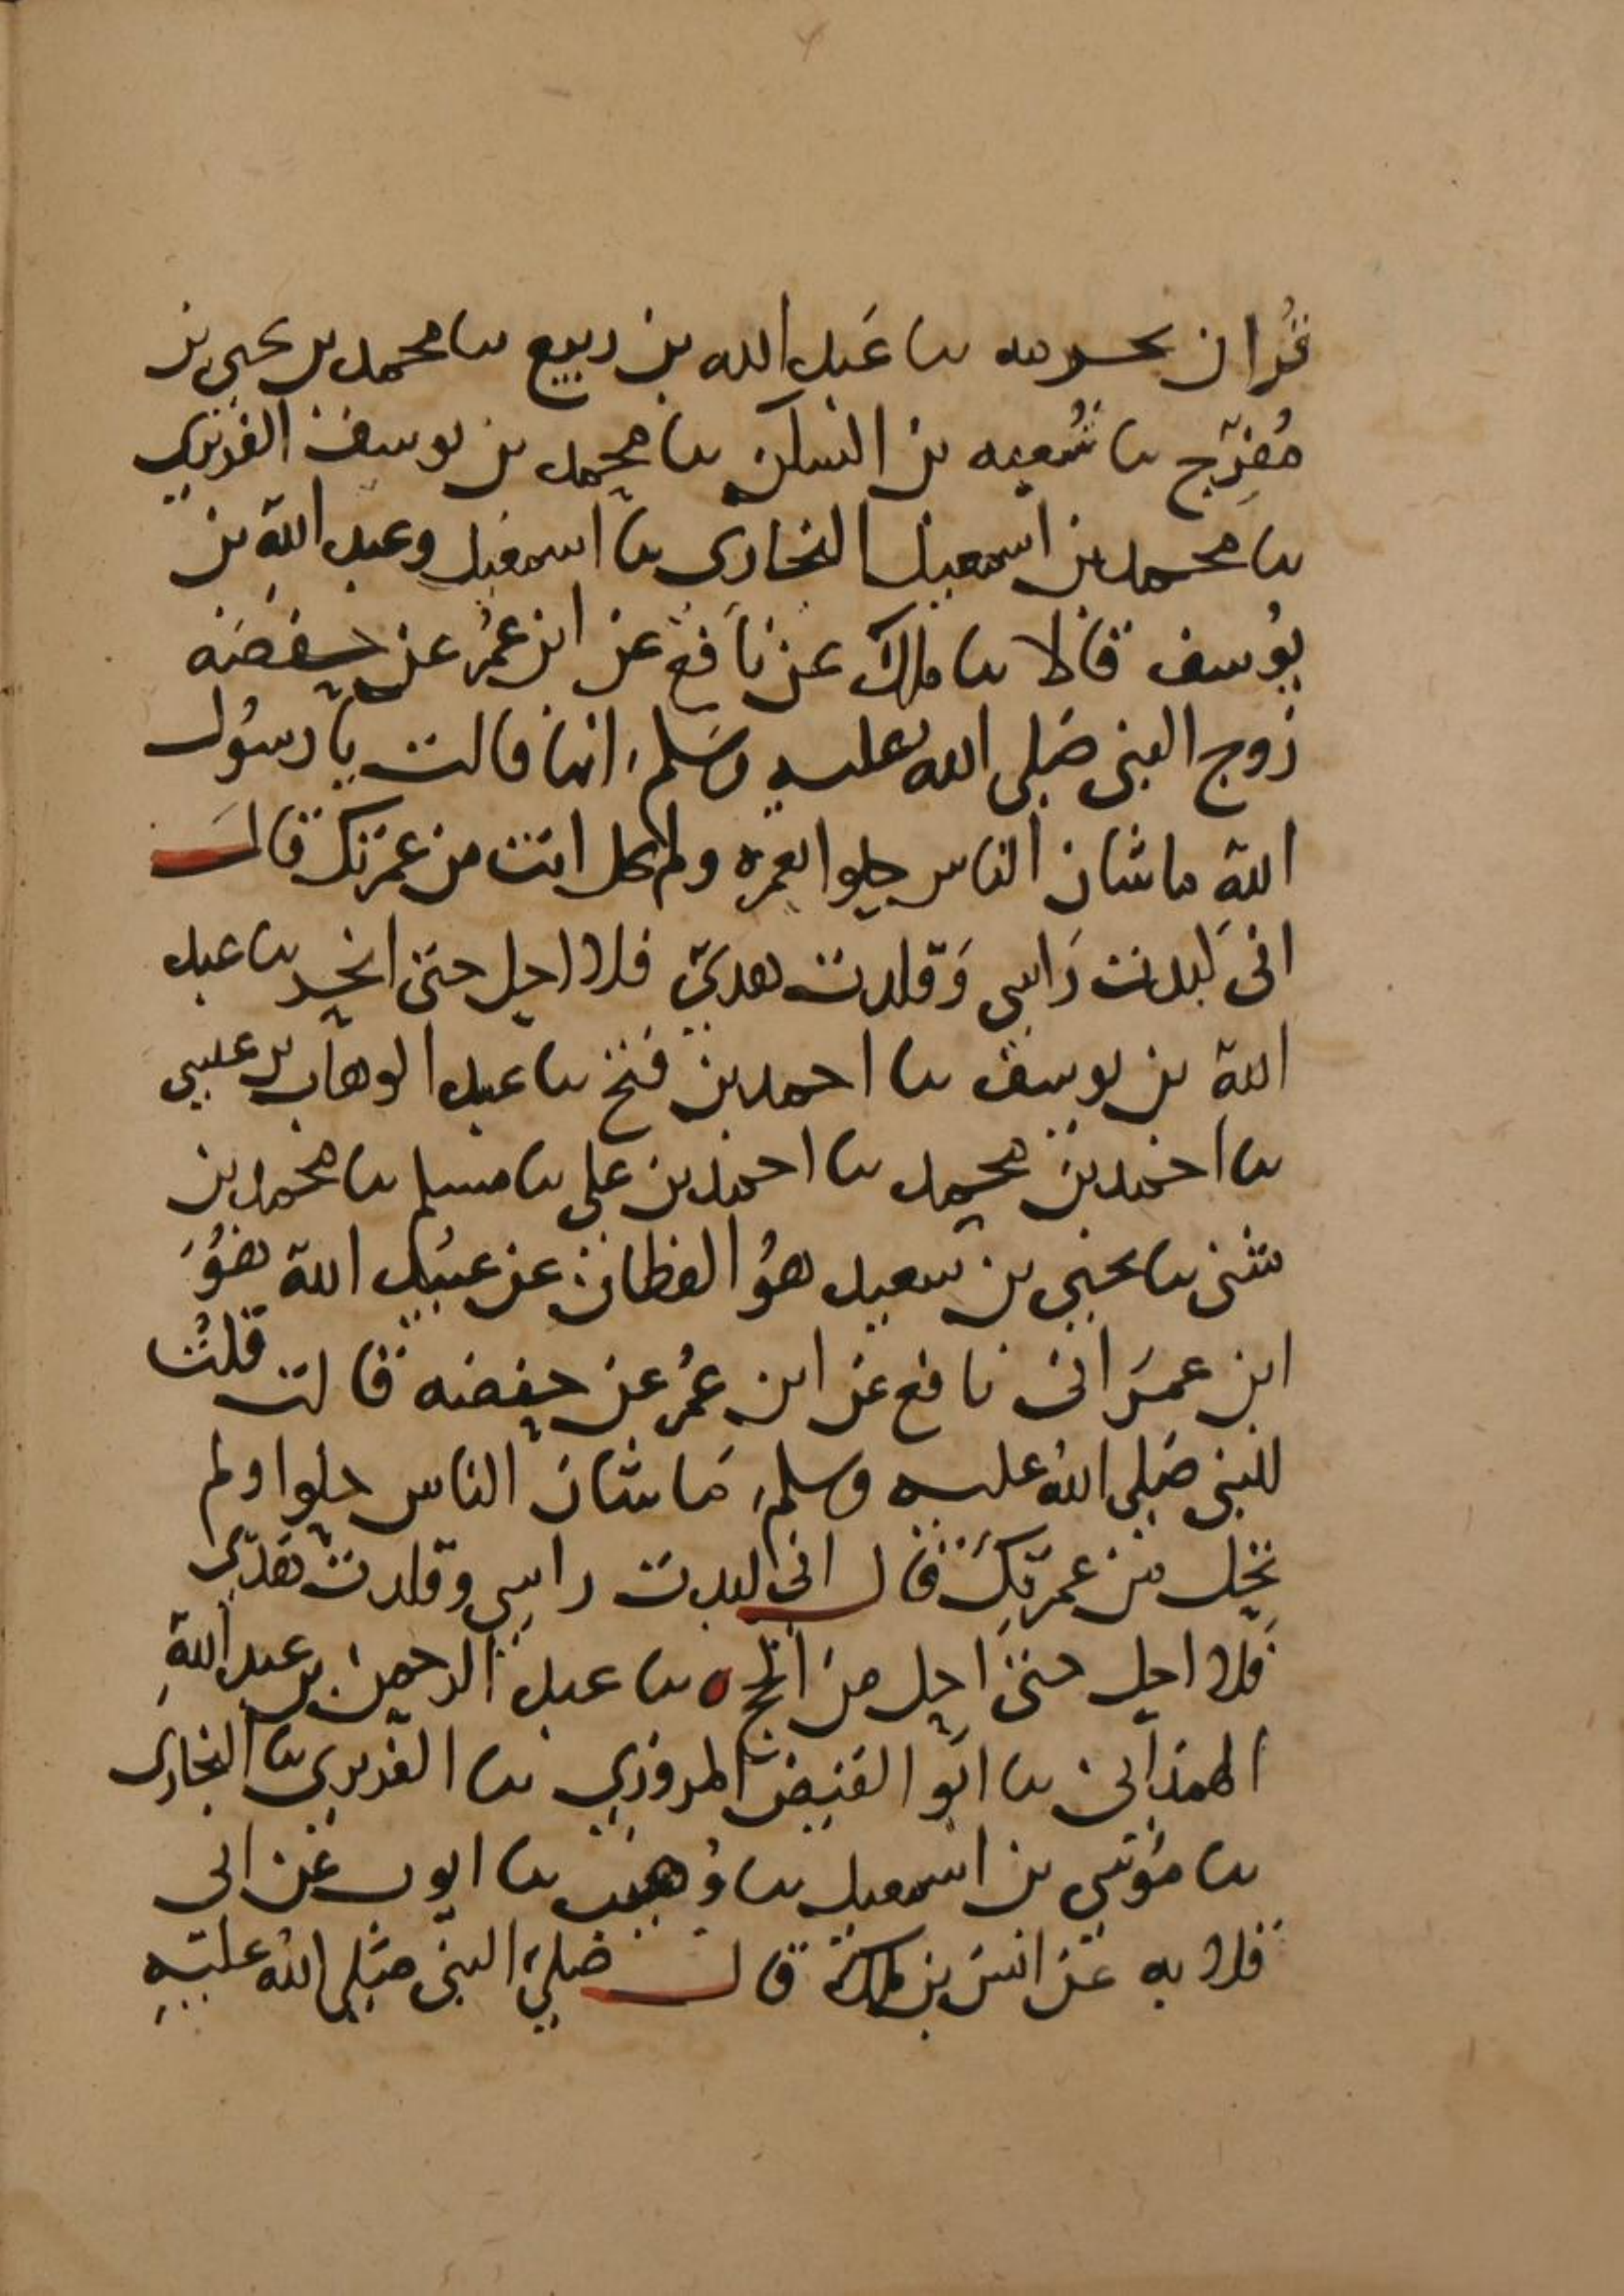 قران بحرمه ںا عَبد الله بن ربيع ںا محمد بن يحيى بن
مُفرّج ںا سُعيد بن السكن ںا محمد بن يوسف الفربري
ںا محمد بن اسمعيل البخارى ںا اسمعيل وعبد الله بن
يوُسف قالا ںا ملك عن نافع عن ابن عمُر عن حفصَه
زوج النبي صَلى الله عليه وسَلم، انها قالت يا رسُول
اللهِ ما شان الناس حلوا بعمره ولم تحل انت من عمرتك قالَ
انى لَبدت رَاسى وَقلدت هديّ فلا احل حتى انحر ںا عبد
الله بن يوسف ںا احمد بن فتح ںا عبد الوهاب بن عيسى
ںا احمد بن محمد ںا احمد بن على ںا مسلم ںا محمد بن
مثنى ںا يحيى بن سعيد هوُ القطان عن عبيُد الله هوُ
ابن عمَر انى نافع عن ابن عمُر عن حفصه قالت قلتُ
للنبى صَلى اللهُ عليه وسلم، مَا شان الناس حلوا ولم
تحِل من عمرتكَ قال انى لبدت راسي وقلدت هَديّ
فلا احل حتى احل من الحج ه ںا عبد الرحمن بن عبد اللهِ
الهمذَانى ںا ابو الفيض المروزي ںا الفربري ںا البخارى
ںا موسى بن اسمعيل ںا وُهيب ںا ايوب عن ابى
قلابه عَن انسَ بن ملك قال صَلىّ النبى صَلى اللهُ عليهِ